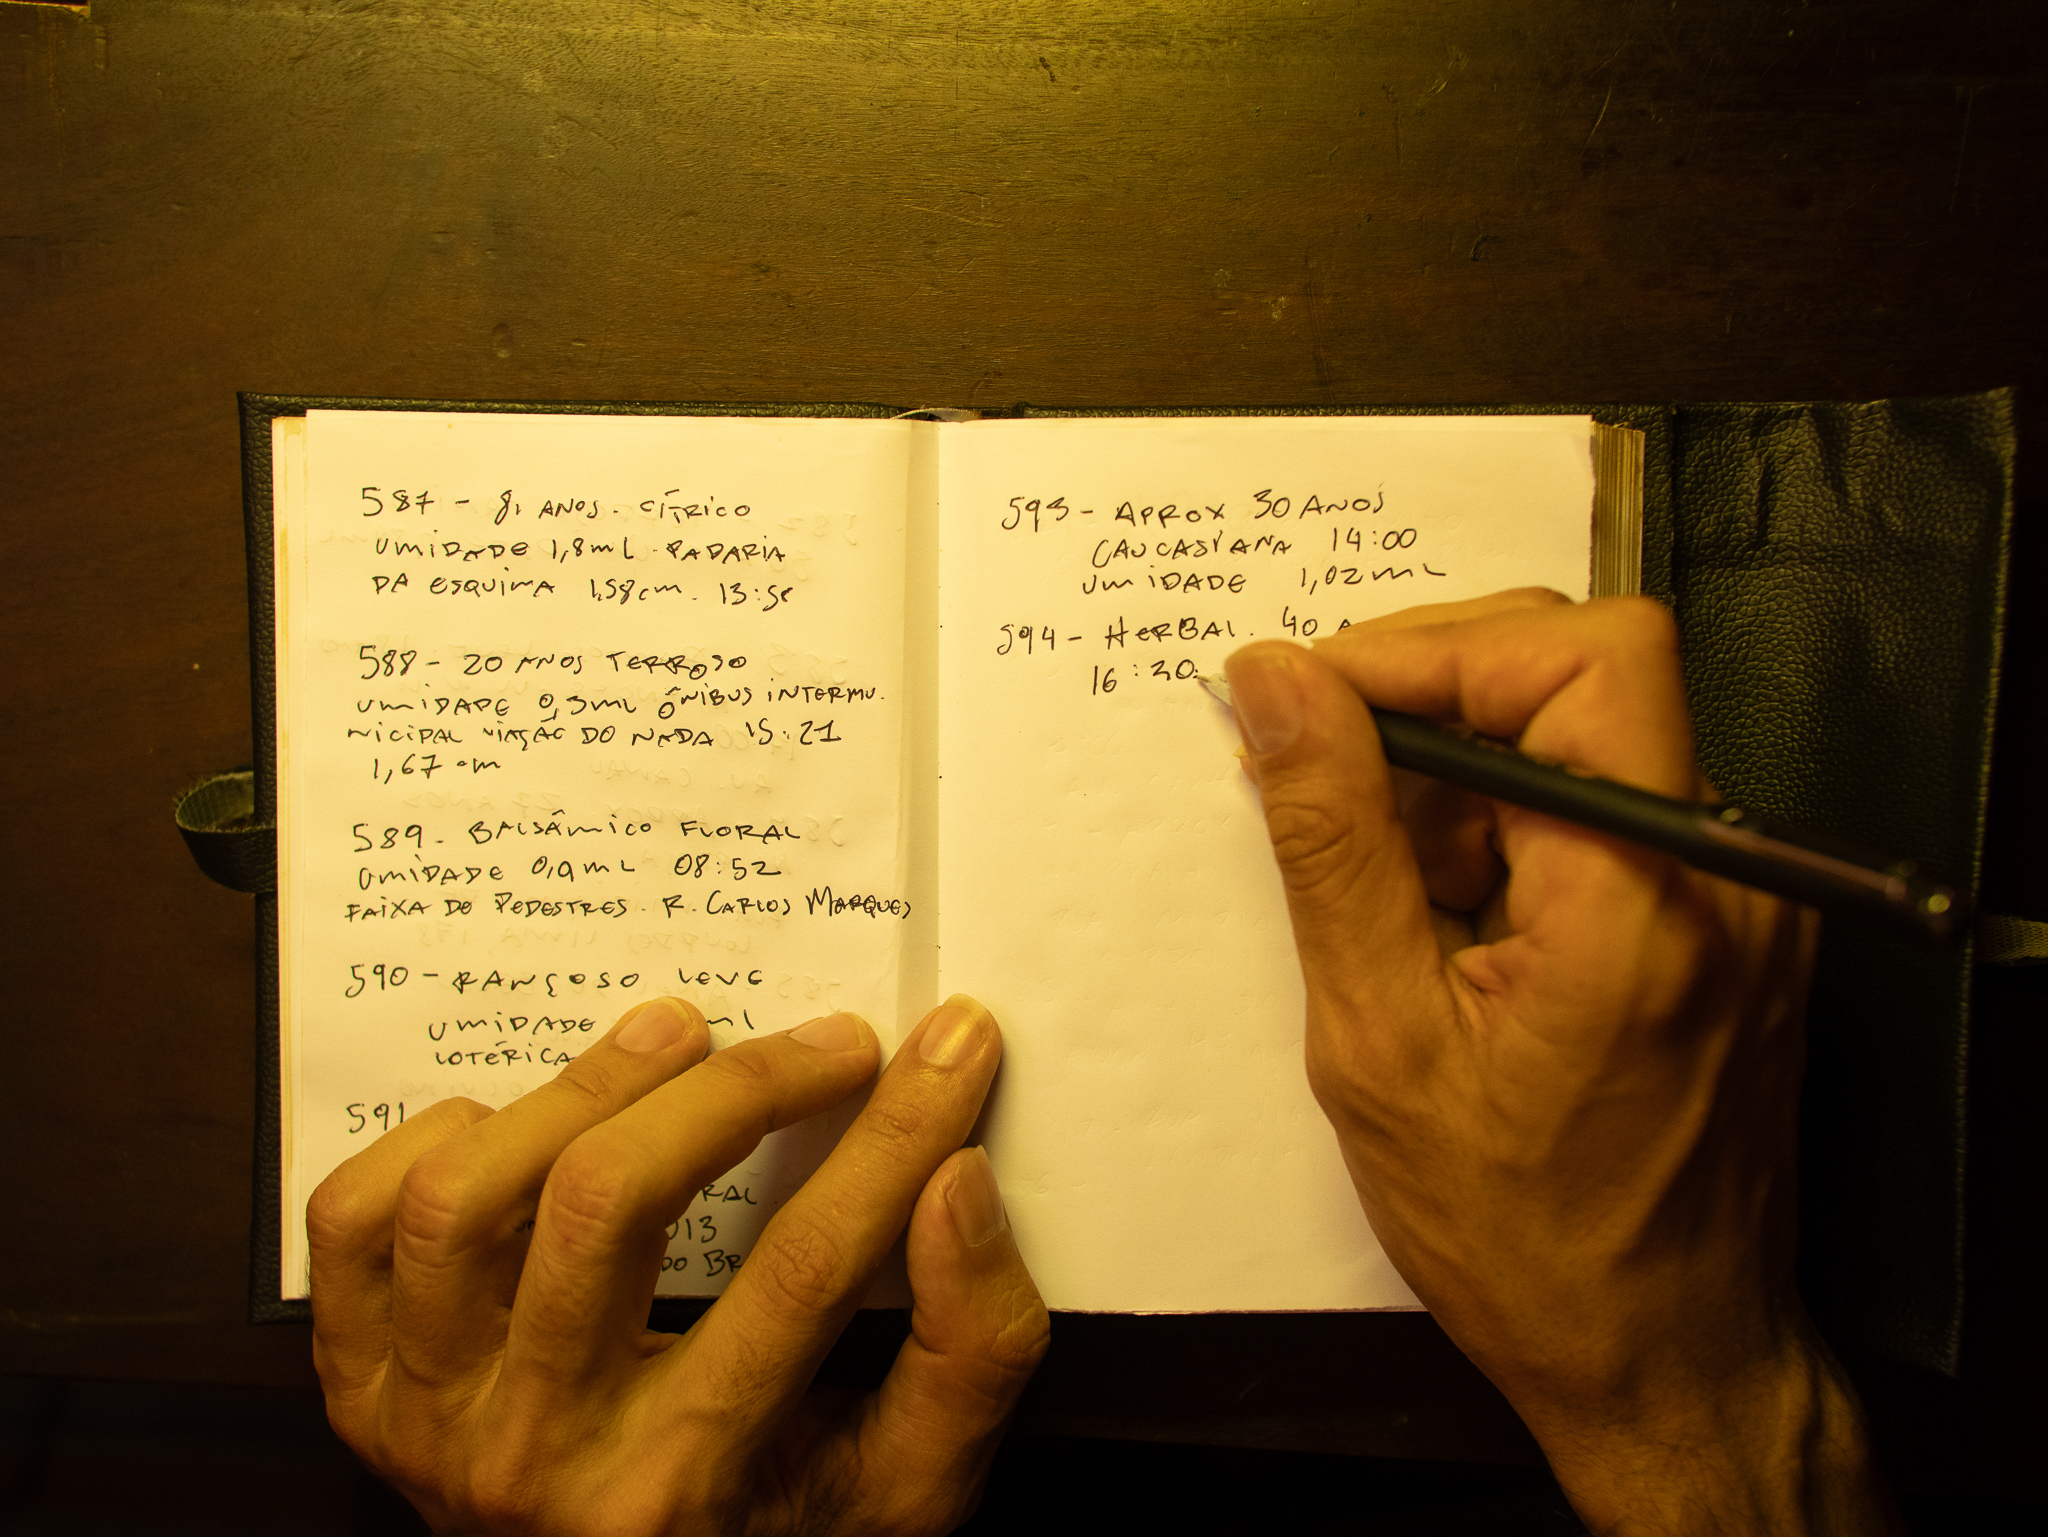 587 - 81 ANOS. CÍTRICO
UMIDADE 1,8ML. PADARIA
DA ESQUINA 1,58cm. 13:58
588 - 20 ANOS TERROSO
UMIDADE 0,3ML ÔNIBUS INTERMU.
NICIPAL VIAÇÃO DO NADA 15:21
1,67 cm
589. BALSÂMICO FLORAL
UMIDADE 0,9ML 08:52
FAIXA DE PEDESTRES. R. CARLOS MARQUES
590 - RANÇOSO LEVE
UMIDADE ml
LOTÉRICA
591
RAL
013
DO BR
593 - APROX 30 ANOS
CAUCASIANA 14:00
UMIDADE 1,02ML
594 - HERBAL. 40 A
16:30